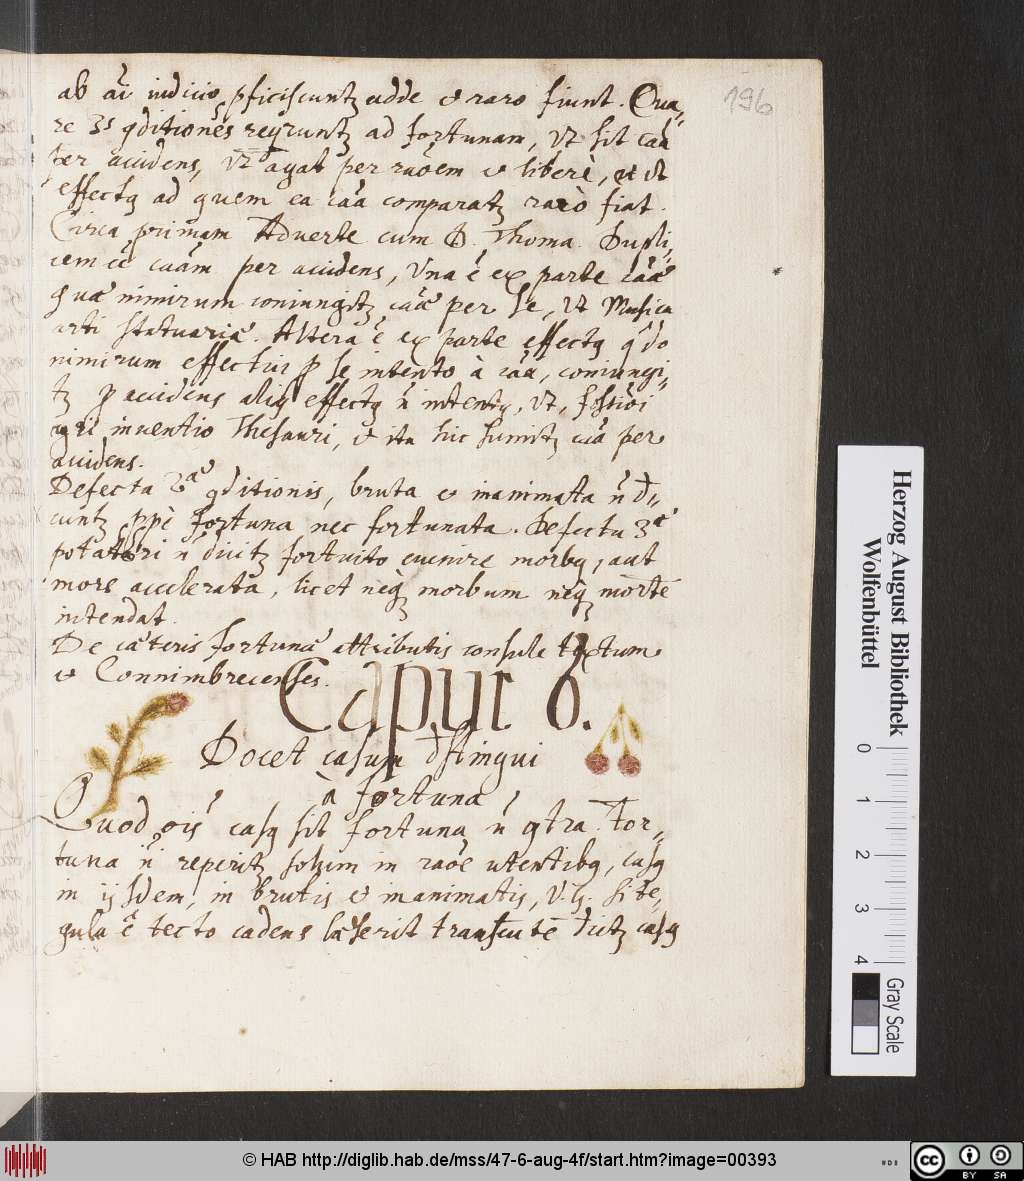 196
ab ai͂ iudicio, pficiscuntꝫ adde & raro fiunt. Qua,,
re 3s ꝯditiones reqruntꝫ ad fortunam, vt sit caa͂
per accidens, vt agat per rao͂em & liberè, et vt
effectꝯ ad quem ea caa͂ comparatꝫ rarò fiat.
Circa primam Adverte cum D. Thoma. Dupli,,
cem eē caa͂m per accidens, Una ē ex parte caa͂e
quae nimirum coniungitꝫ caa͂e per se, vt Musica
arti statuariae. Altera ē ex parte effectꝯ qn͂do
nimirum effectui p se intento à caa͂, coniungi,,
tꝫ p accidens aliꝯ effectꝯ n͂ intentꝯ, vt,
inventio Thesauri, & ita hic sumitꝫ caa͂ per
accidens.
Defectu 2ae ꝯditionis, bruta & inanimata n͂ di,,
cuntꝫ ppē fortuna nec fortunata. Defectu 3ae
potatori n͂ dicitꝫ fortuito evenire morbꝯ, aut
mors accelerata, licet neqꝫ morbum neqꝫ mortē
intendat.
De caeteris fortunae attributis consule textum
& Connimbrecenses.
Caput 6.
Docet casum distingui
à fortuna
Quod ois͂ casꝯ sit fortuna n͂ ꝯtra. For,,
tuna n͂ reperitꝫ solum in rao͂e utentibꝯ, casꝯ
in ijsdem, in brutis & inanimatis, V.g. si te,,
gula ē tecto cadens laeserit transeutē dicitꝫ casꝯ
Herzog August Bibliothek
Wolfenbüttel
0 1 2 3 4
Gray Scale
© HAB http://diglib.hab.de/mss/47-6-aug-4f/start.htm?image=00393
cc BY SA